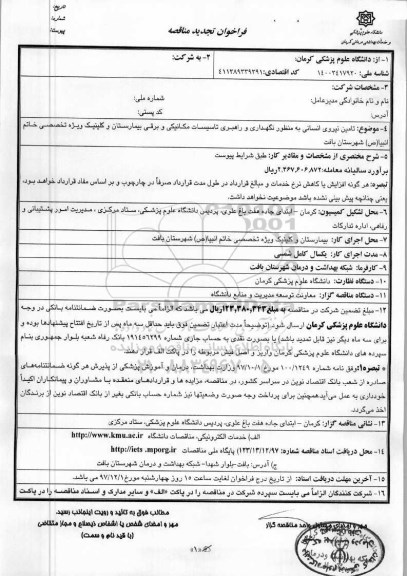 تاریخ:
شماره:
پیوست:
فراخوان تجدید مناقصه
۱- از: دانشگاه علوم پزشکی کرمان:
۲- به شرکت:
شناسه ملی: ۱۴۰۰۲۴۱۷۹۲۰ کد اقتصادی: ۴۱۱۲۸۹۳۳۹۲۹۱
۳- مشخصات شرکت:
نام و نام خانوادگی مدیرعامل: شماره ملی:
آدرس: کد پستی:
۴- موضوع: تامین نیروی انسانی به منظور نگهداری و راهبری تاسیسات مکانیکی و برقی بیمارستان و کلینیک ویژه تخصصی خاتم
انبیا(ص) شهرستان بافت
۵- شرح مختصری از مشخصات و مقادیر کار: طبق شرایط پیوست
برآورد سالیانه معامله: ۲.۴۶۷.۶۰۶.۸۷۲ریال
تبصره: هر گونه افزایش یا کاهش نرخ خدمات و مبالغ قرارداد در طول مدت قرارداد صرفاً در چارچوب و بر اساس مفاد قرارداد خواهد بود،
یعنی چنانچه پیش بینی نشده باشد موضوعیت نخواهد داشت.
۶- محل تشکیل کمیسیون: کرمان – ابتدای جاده هفت باغ علوی، پردیس دانشگاه علوم پزشکی، ستاد مرکزی، مدیریت امور پشتیبانی و
رفاهی، اداره تدارکات
۷- محل اجرای کار: بیمارستان و کلینیک ویژه تخصصی خاتم انبیا(ص) شهرستان بافت
۸- مدت اجرای کار: یکسال کامل شمسی
۹- کارفرما: شبکه بهداشت و درمان شهرستان بافت
۱۰- دستگاه نظارت: دانشگاه علوم پزشکی کرمان
۱۱- دستگاه مناقصه گزار: معاونت توسعه مدیریت و منابع دانشگاه
۱۲- مبلغ تضمین شرکت در مناقصه به مبلغ ۱۲۳.۳۸۰.۳۴۳ریال می باشد که الزاماً می بایست بصورت ضمانتنامه بانکی در وجه
دانشگاه علوم پزشکی کرمان ارسال شود (توضیحاً مدت اعتبار تضمین فوق باید حداقل سه ماه پس از تاریخ افتتاح پیشنهادها بوده و
برای سه ماه دیگر نیز قابل تمدید باشد) یا بصورت نقدی به حساب جاری شماره ۱۹۱۴۵۶۲۹۹ بانک رفاه شعبه بلوار جمهوری بنام
سپرده های دانشگاه علوم پزشکی کرمان واریز و اصل فیش مربوطه را در پاکت الف قرار دهند.
*تبصره(۱):برابر نامه شماره ۱۰۰/۱۲۴۹ مورخ ۹۷/۱۰/۵ وزارت بهداشت، درمان و آموزش پزشکی از پذیرش هر گونه ضمانتنامه‌های
صادره از شعب بانک اقتصاد نوین در سراسر کشور، در مناقصه، مزایده ها و قراردادهای منعقده با مشاوران و پیمانکاران اکیداً
خودداری به عمل می‌آید همچنین برای پرداخت وجه صورت وضعیتها نیز شماره حساب بانکی بغیر از بانک اقتصاد نوین از برندگان
اخذ می‌گردد.
۱۳- نشانی مناقصه گزار: کرمان – ابتدای جاده هفت باغ علوی، پردیس دانشگاه علوم پزشکی، ستاد مرکزی
الف) خدمات الکترونیکی، مناقصات دانشگاه http://www.kmu.ac.ir
۱۴- محل دریافت اسناد مناقصه شماره: (۱۳۳/۱۳/۱۲/۹۷) پایگاه ملی مناقصات http://iets.mporg.ir
ج) آدرس: بافت- بلوار شهدا- شبکه بهداشت و درمان شهرستان بافت
۱۵- آخرین مهلت دریافت اسناد: از تاریخ درج فراخوان لغایت ساعت ۱۵ روز چهارشنبه مورخ ۹۷/۱۲/۱ می باشد.
۱۶- شرکت کنندگان الزاماً می بایست سپرده شرکت در مناقصه را در پاکت «الف» و سایر مدارک و اسناد مناقصه را در پاکت
مطالب فوق به تائید و رویت اینجانب رسید.
مهر و امضای شخص یا اشخاص ذیصلاح و مجاز متقاضی
(با قید نام و سمت)